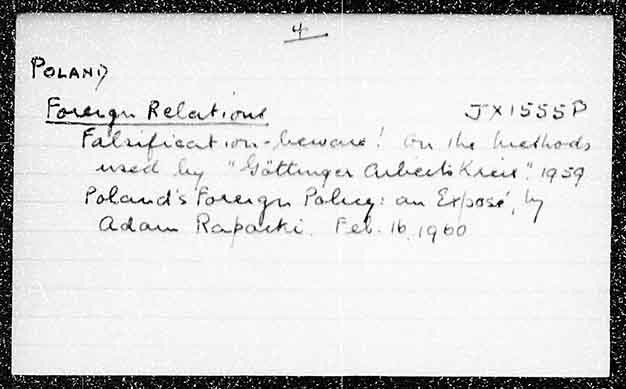 4
POLAND
Foreign Relations JX1555P
Falsification - beware! On the methods
used by "Göttinger Arbeits Kreis". 1959
Poland's Foreign Policy: an Exposé, by
Adam Rapacki. Feb. 16, 1960